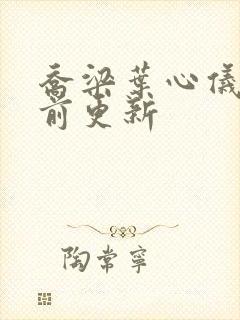 乔梁叶心仪
前更新
陶常宁